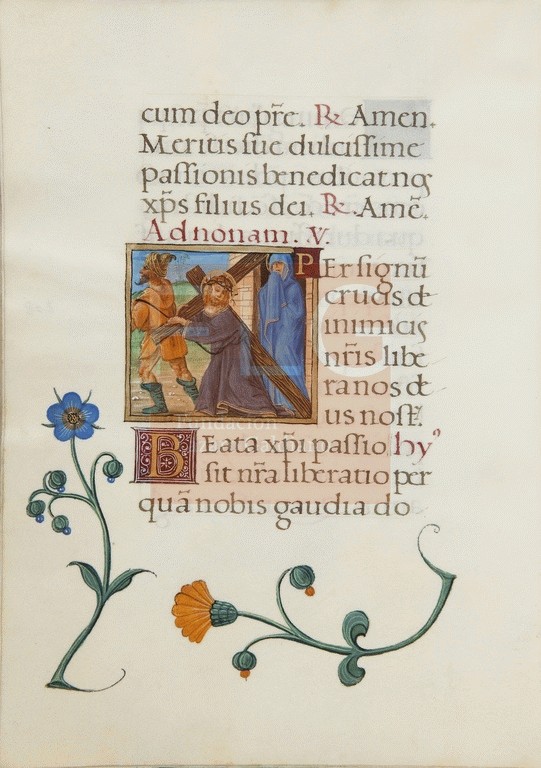 cum deo pr̃e. ℞ Amen.
Meritis sue dulcissime
passionis benedicat nos
xp̃s filius dei. ℞. Amẽ.
Ad nonam. . V.
PEr signũ
crucis de
inimicis
nr̃is libe
ra nos de
us nost̃.
BEata xp̃i passio hyº
sit nr̃a liberatio per
quã nobis gaudia do
Fundación